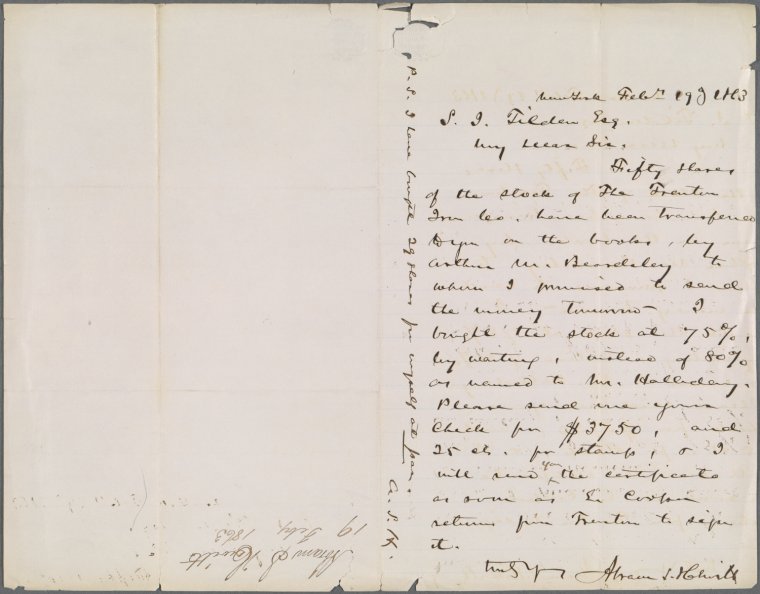 New York Feby 19, 1863
S. J. Tilden Esq.
My Dear Sir.
Fifty shares
of the stock of The Trenton
Iron Co. have been transferred
to you on the books, by
Arthur M. Beardsley to
whom I promised to send
the money tomorrow I
bought the stock at 75%,
by waiting, instead of 80%
as named to Mr. Halliday.
Please send me your
Check for $3750, and
25 cts. for stamp, & I
will send you the certificate
as soon as Ed Cooper
returns from Trenton to sign
it.
Truly Yours Abram S. Hewitt
P.S. I have bought 29 shares for myself at par. A.S.H.
Abram S Hewitt
19 Feby 1863